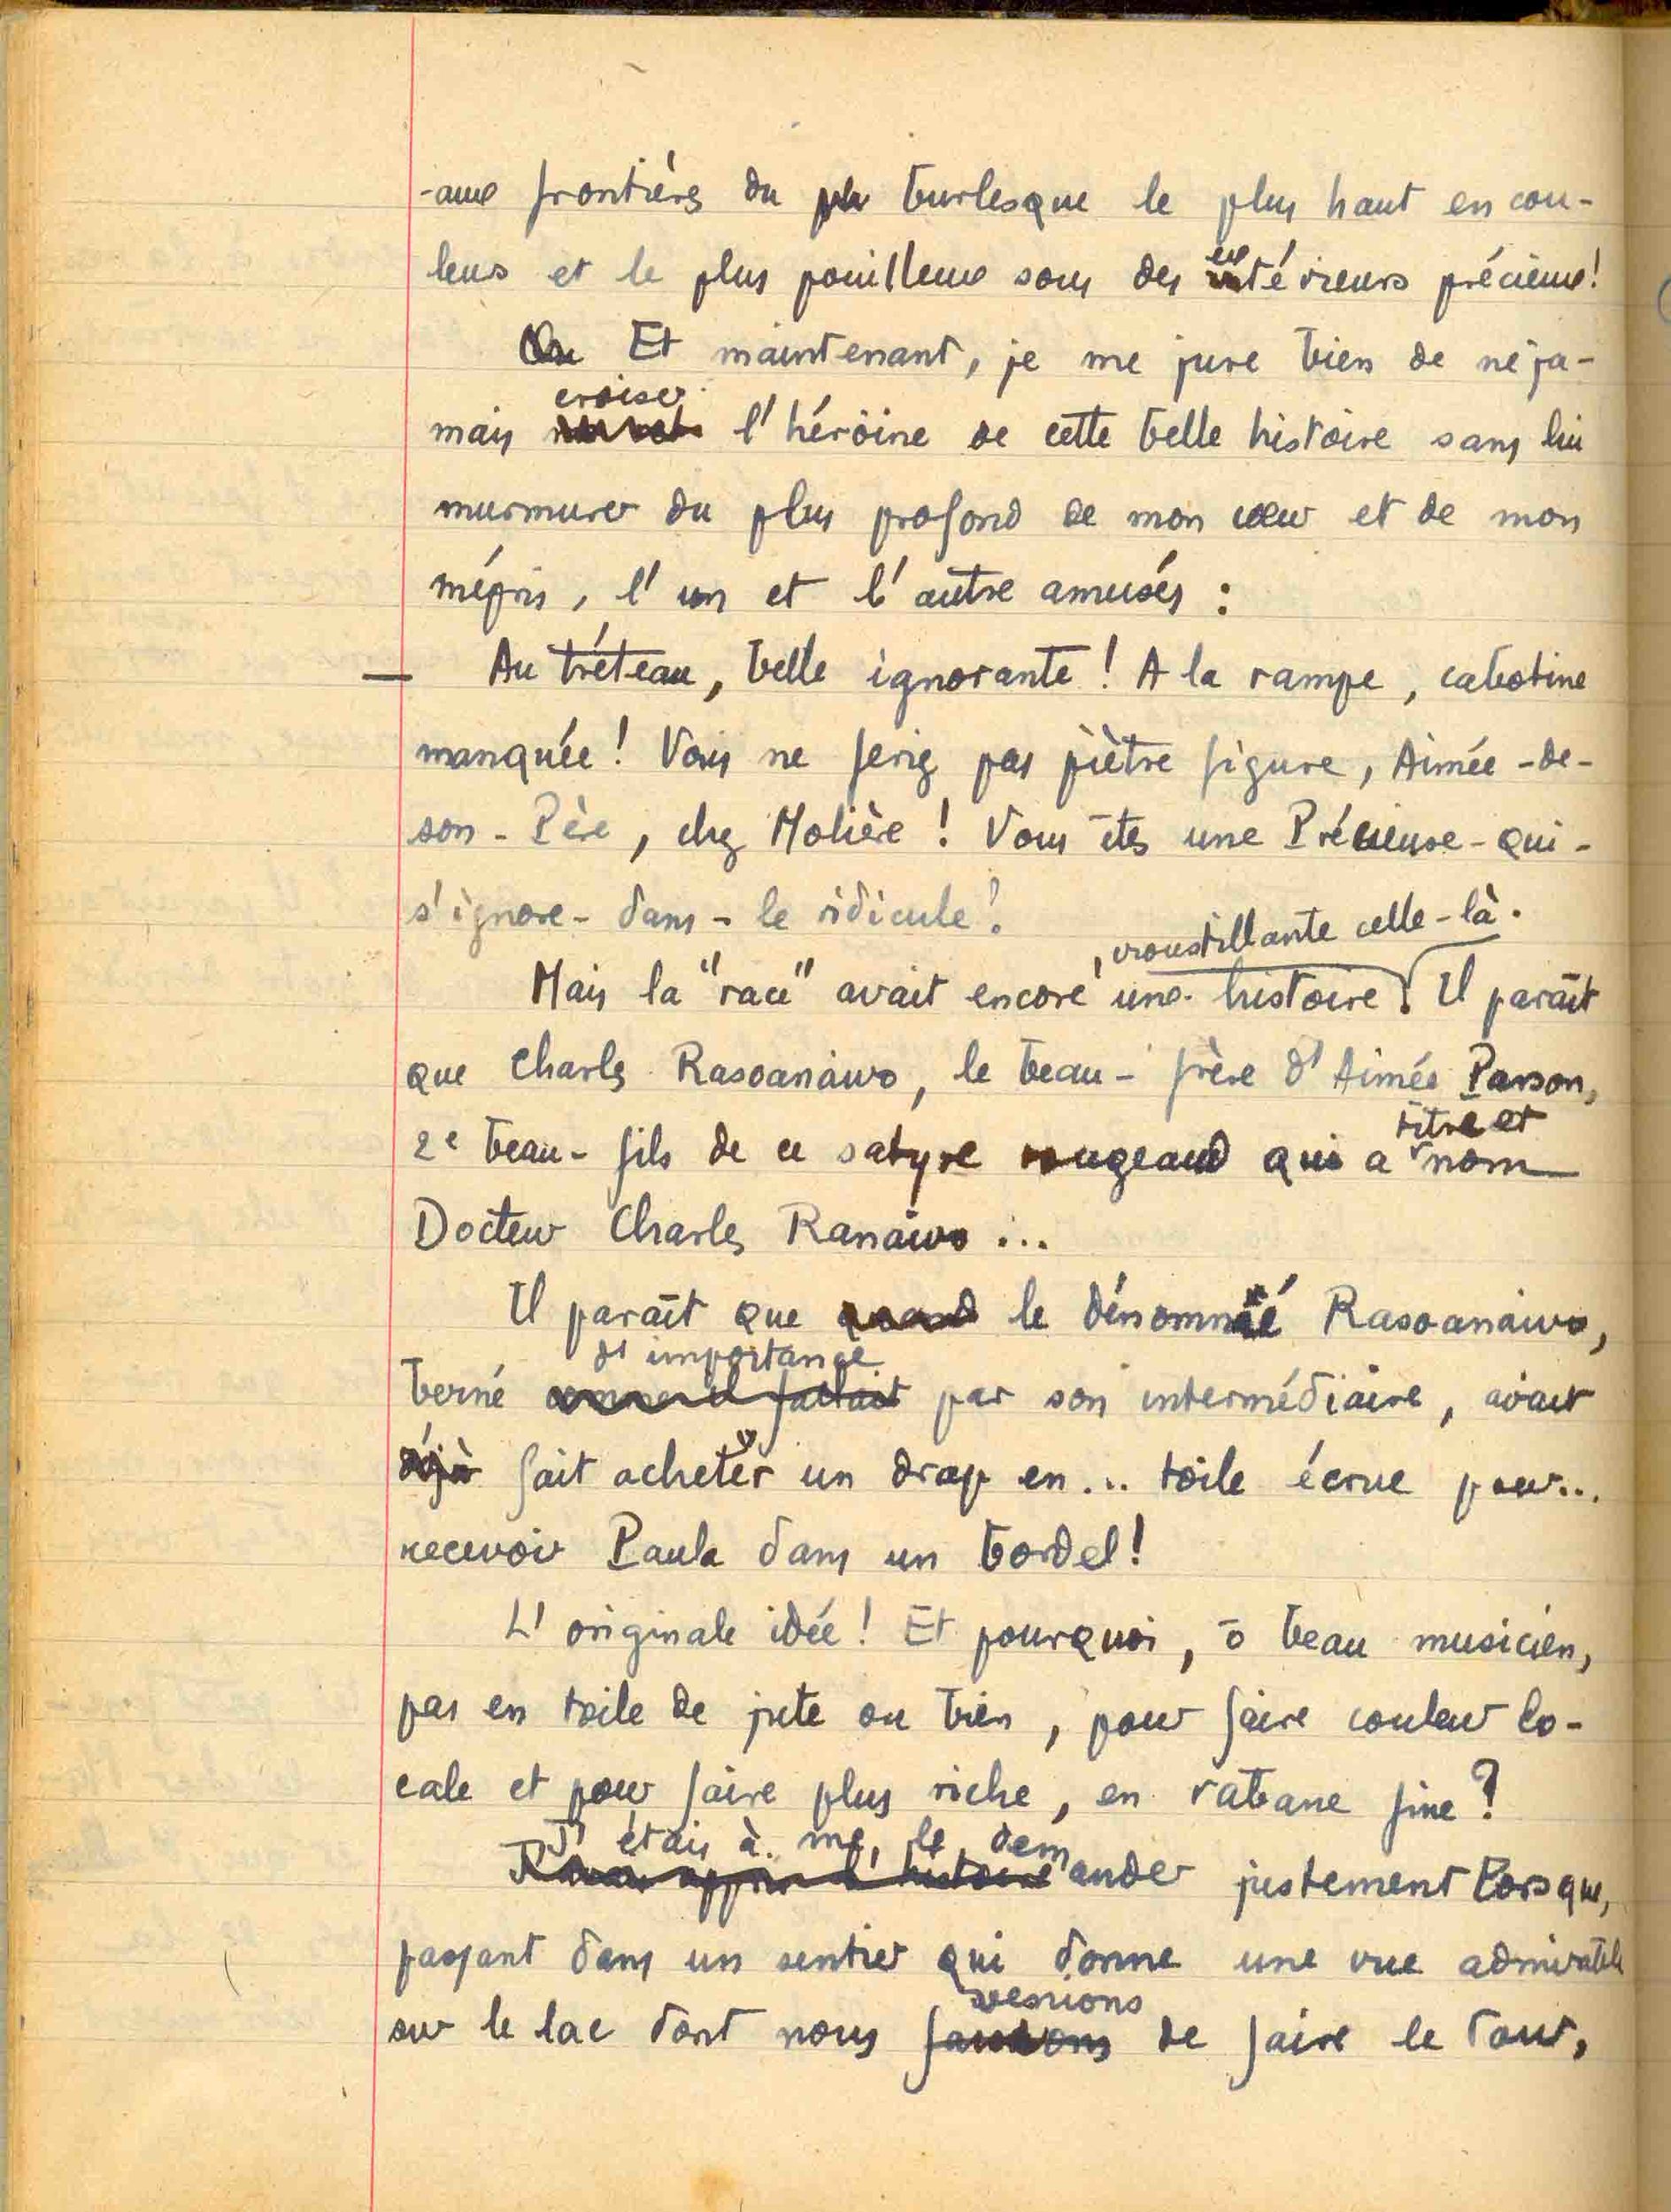 -aux frontières du burlesque le plus haut en cou-
leurs et le plus pouilleux sous des extérieurs précieux!
Et maintenant, je me jure bien de ne ja-
croiser
mais l'héroïne de cette belle histoire sans lui
murmurer du plus profond de mon cœur et de mon
mépris, l'un et l'autre amusés :
— Au tréteau, belle ignorante ! A la rampe, cabotine
manquée ! Vous ne feriez pas piètre figure, Aimée-de-
son-Père, chez Molière ! Vous êtes une Précieuse-qui-
s'ignore-dans-le ridicule !
, croustillante celle-là.
Mais la "race" avait encore une histoire. Il paraît
que Charles Rasoanaivo, le beau-frère d'Aimée Parson,
2e beau-fils de ce satyre rougeaud qui a nom
titre et
Docteur Charles Ranaivo ...
Il paraît que quand le dénommé Rasoanaivo,
d'importance
berné comme il fallait par son intermédiaire, avait
déjà fait acheter un drap en... toile écrue pour...
recevoir Paula dans un bordel!
L'originale idée! Et pourquoi, ô beau musicien,
pas en toile de jute ou bien, pour faire couleur lo-
cale et pour faire plus riche, en rabane fine ?
J'étais à me le dem
ander justement lorsque,
passant dans un sentier qui donne une vue admirable
venions
sur le lac dont nous de faire le tour,